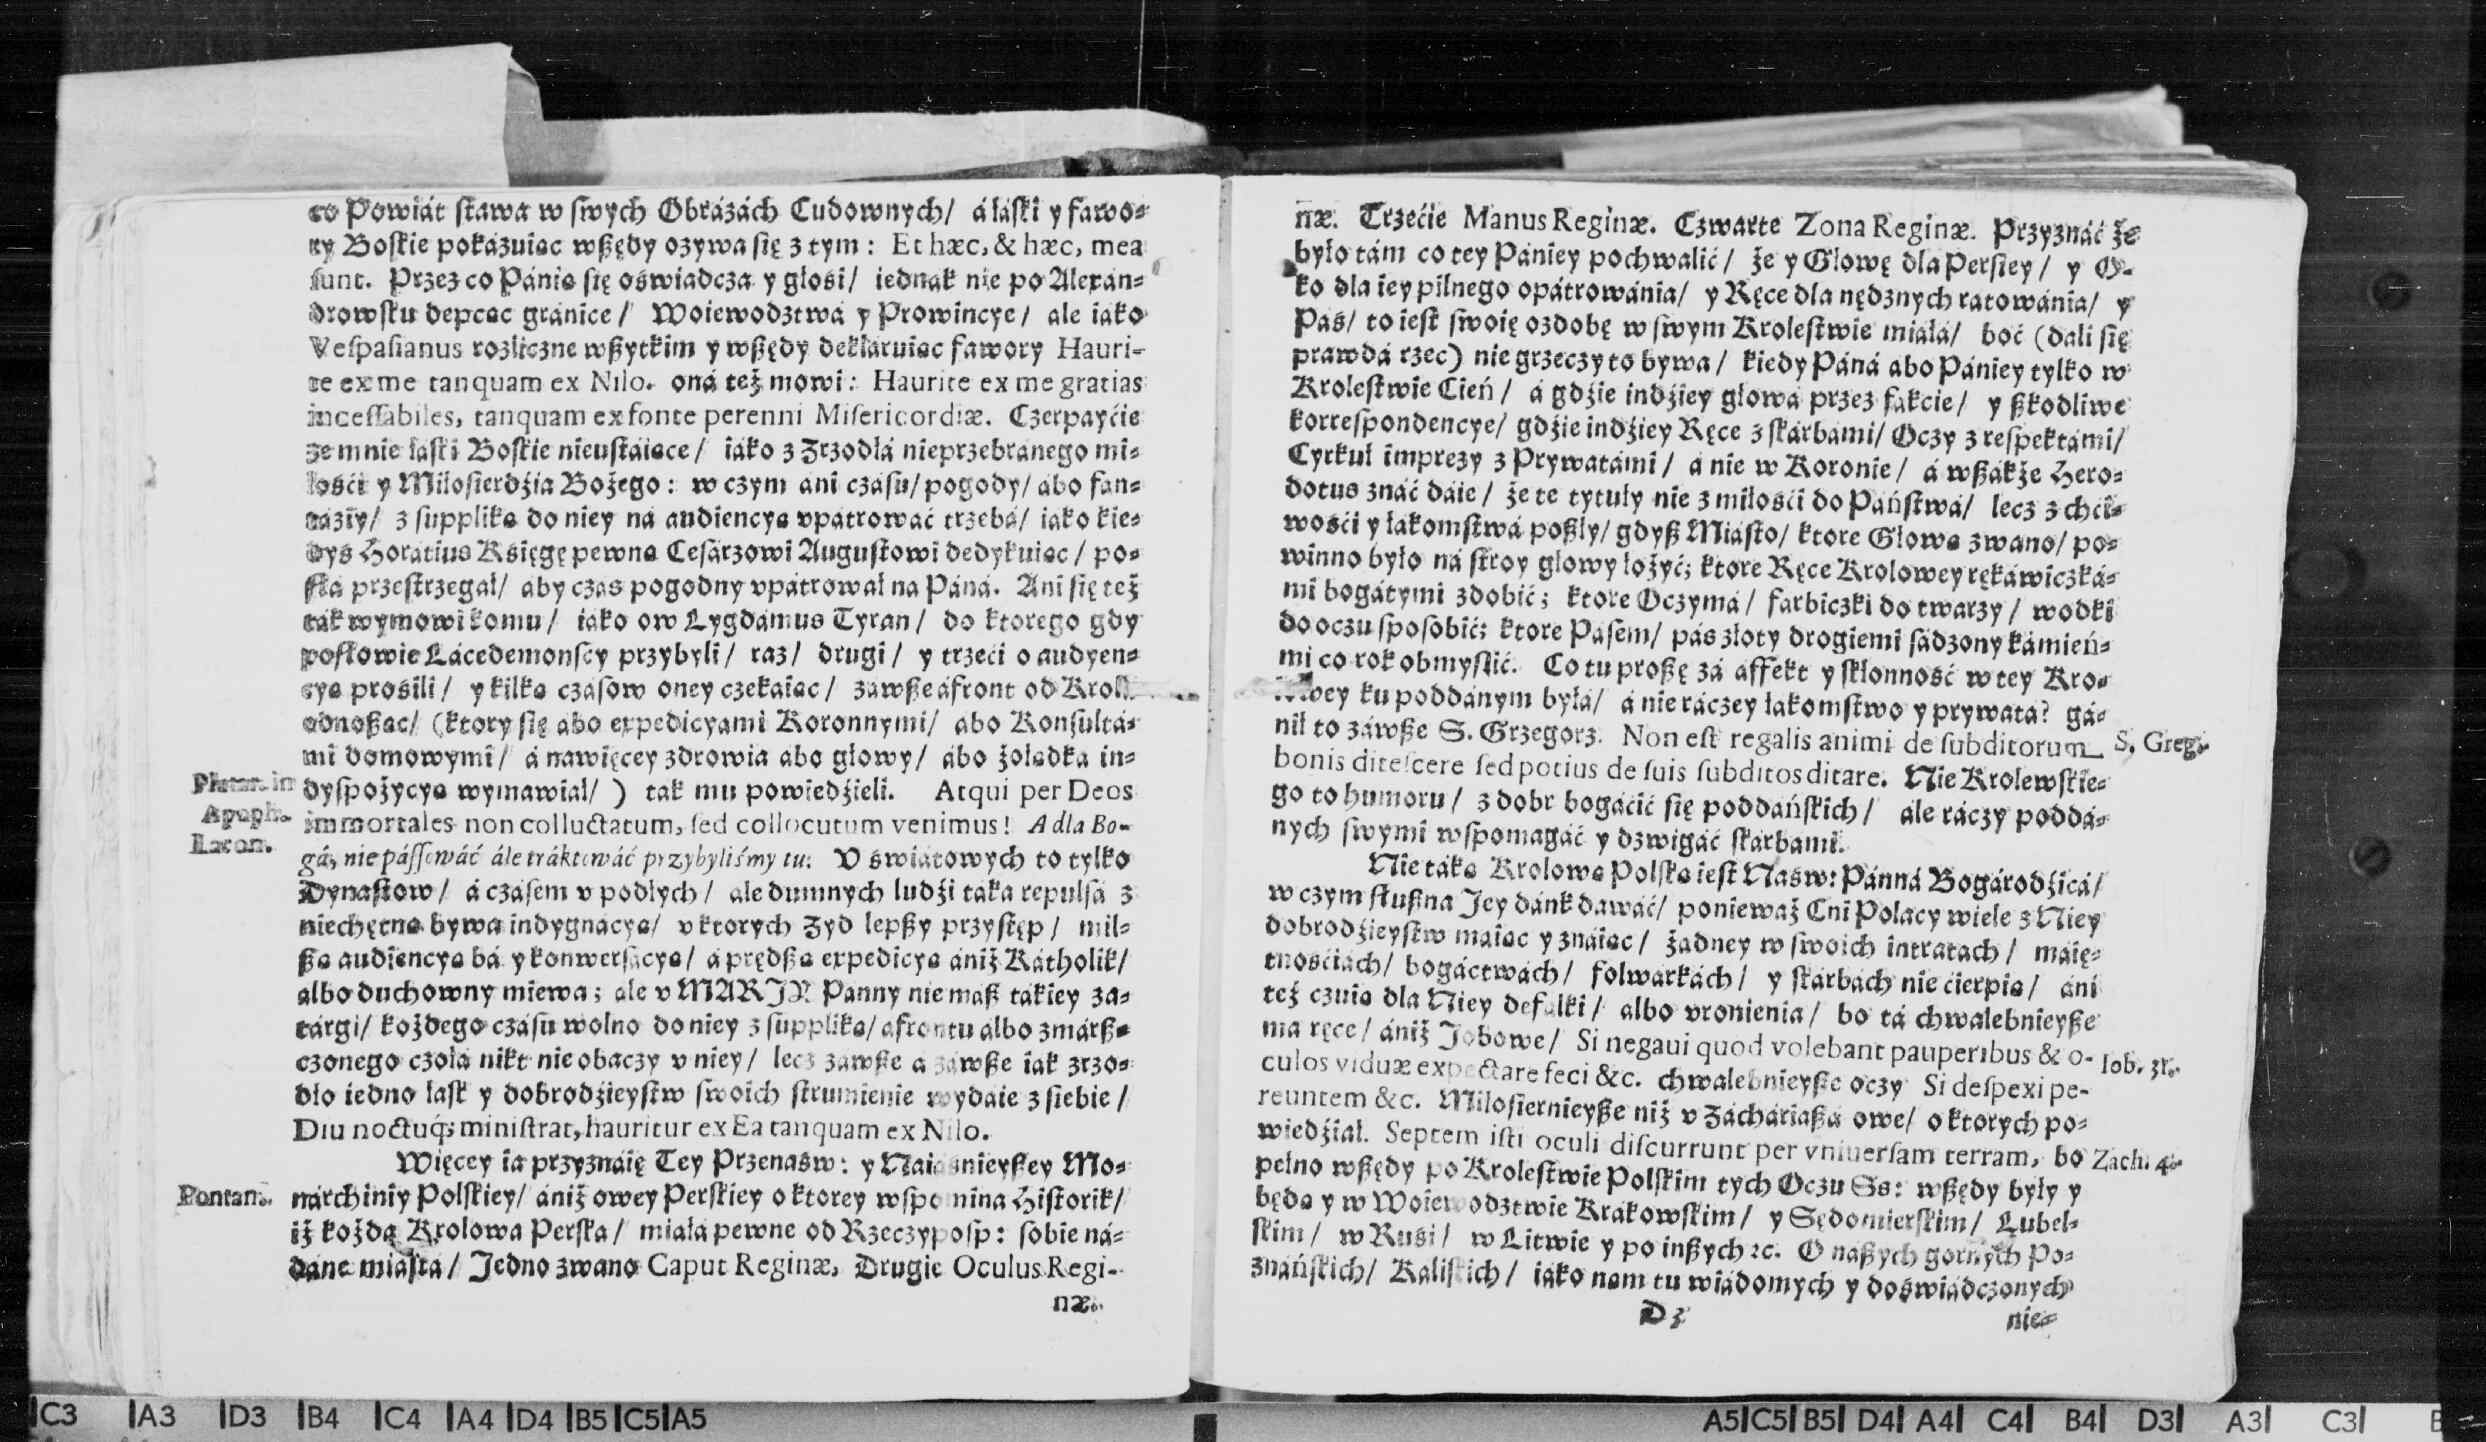 co Powiát stawa w swych Obrázách Cudownych/ á łáski y fawo-
ry Boskie pokázuiąc wszędy ozywa się z tym: Et hæc, & hæc, mea
sunt. Przez co Pánią się oświadcza y głosi/ iednak nie po Alexán-
drowsku depcąc gránice/ Woiewodztwá y Prowincye/ ale iáko
Vespasianus rozliczne wszytkim y wszędy dekláruiąc fawory Hauri-
te ex me tanquam ex Nilo. oná też mowi: Haurite ex me gratias
incessabiles, tanquam ex fonte perenni Misericordiæ. Czerpayćie
ze mnie łáski Boskie nieustáiące/ iáko z Zrzodłá nieprzebránego mi-
łośći y Miłosierdźia Bożego: w czym ani czásu/ pogody/ ábo fan-
tázïy/ z suppliką do niey ná audiencyą vpátrowáć trzebá/ iáko kie-
dyś Horátius Księgę pewną Cesárzowi Augustowi dedykuiąc/ po-
słá przestrzegał/ aby czás pogodny vpátrował na Páná. Ani się też
ták wymowi komu/ iáko ow Lygdámus Tyran/ do ktorego gdy
posłowie Lácedemonscy przybyli/ raz/ drugi/ y trzeći o audyen-
cyą prosili/ y kilka czásow oney czekáiąc/ záwsze áfront od Krol
odnosząc/ (ktory się abo expedicyami Koronnymi/ abo Konsultá-
mi domowymi/ á nawięcey zdrowia abo głowy/ ábo żołądka in-
Plutar. in
dyspożycyą wymawiał/ ) tak mu powiedźieli. Atqui per Deos
Apoph.
immortales non colluctatum, sed collocutum venimus! A dla Bo-
Lacon.
gá, nie pássowáć ále tráktowáć przybyliśmy tu: V świátowych to tylko
Dynastow/ á czásem v podłych/ ale dumnych ludźi taka repulsá z
niechętną bywa indygnácyą/ v ktorych Zyd lepszy przystęp/ mil-
szą audiencyą bá y konwersácyą/ á prędszą expedicyą ániż Kátholik/
albo duchowny miewa; ale v MARIN Panny nie masz tákiey za-
targi/ kożdego czásu wolno do niey z suppliką/ afrontu albo zmársz-
czonego czołá nikt nie obaczy v niey/ lecz záwsze a záwsze iak zrzo-
dło iedno łask y dobrodźieystw swoich strumienie wydaie z siebie/
Diu noctuq́; ministrat, hauritur ex Ea tanquam ex Nilo.
Więcey ia przyznáię Tey Przenaśw: y Naiaśnieyszey Mo-
Pontan.
nárchiniy Polskiey/ ániż owey Perskiey o ktorey wspomina Historik/
iż kożdą Krolowa Perska/ miałá pewne od Rzeczyposp: sobie ná-
dáne miastá/ Jedno zwano Caput Reginæ, Drugie Oculus Regi-
næ.
næ. Trzećie Manus Reginæ. Czwarte Zona Reginæ. Przyznáć że
było tám co tey Pániey pochwalić/ że y Głowę dla Persiey/ y O-
ko dla iey pilnego opátrowánia/ y Ręce dla nędznych ratowánia/ y
Pás/ to iest swoię ozdobę w swym Krolestwie miałá/ boć (dali się
prawdá rzec) nie grzeczy to bywa/ kiedy Páná abo Pániey tylko w
Krolestwie Cień/ á gdźie indźiey głowá przez fakcie/ y szkodliwe
korrespondencye/ gdźie indźiey Ręce z skárbámi/ Oczy z respektámi/
Cyrkuł imprezy z Prywatámi/ á nie w Koronie/ á wszákże Hero-
dotus znáć dáie/ że te tytuły nie z miłośći do Páństwá/ lecz z chći-
wośći y łakomstwá poszły/ gdysz Miásto/ ktore Głową zwano/ po-
winno było ná stroy głowy łożyć; ktore Ręce Krolowey rękáwiczká-
mi bogátymi zdobić; ktore Oczymá/ farbiczki do twarzy/ wodki
do oczu sposobić; ktore Pásem/ pás złoty drogiemi sádzony kámień-
mi co rok obmyślić. Co tu proszę zá áffekt y skłonność w tey Kro-
lowey ku poddánym byłá/ á nie ráczey łakomstwo y prywatá? gá-
nił to záwsze S. Grzegorz. Non est regalis animi de subditorum
S. Greg.
bonis ditescere sed potius de suis subditos ditare. Nie Krolewskie-
go to humoru/ z dobr bogáćić się poddáńskich/ ále ráczy poddá-
nych swymi wspomagáć y dzwigáć skárbami.
Nie táka Krolowa Polska iest Naśw: Pánná Bogárodźicá/
w czym słuszna Jey dánk dawáć/ ponieważ Cni Polacy wiele z Niey
dobrodźieystw máiąc y znáiąc/ żadney w swoich intratach/ máię-
tnościách/ bogáctwách/ folwárkách/ y skárbách nie ćierpią/ ani
też czuią dla Niey defalki/ albo vronienia/ bo tá chwalebnieysze
ma ręce/ ániż Jobowe/ Si negaui quod volebant pauperibus & o-
Iob. 31.
culos viduæ expectare feci &c. chwalebnieysze oczy Si despexi pe-
reuntem &c. Miłosiernieysze niż v Záchariaszá owe/ o ktorych po-
wiedźiał. Septem isti oculi discurrunt per vniuersam terram, bo
Zach. 4.
pełno wszędy po Krolestwie Polskim tych Oczu Ss: wszędy były y
będą y w Woiewodztwie Krákowskim/ y Sędomierskim/ Lubel-
skim/ w Ruśi/ w Litwie y po inszych ꝛc. O nászych gornych Po-
znáńskich/ Kaliskich/ iáko nam tu wiádomych y doświádczonych
D3
nie-